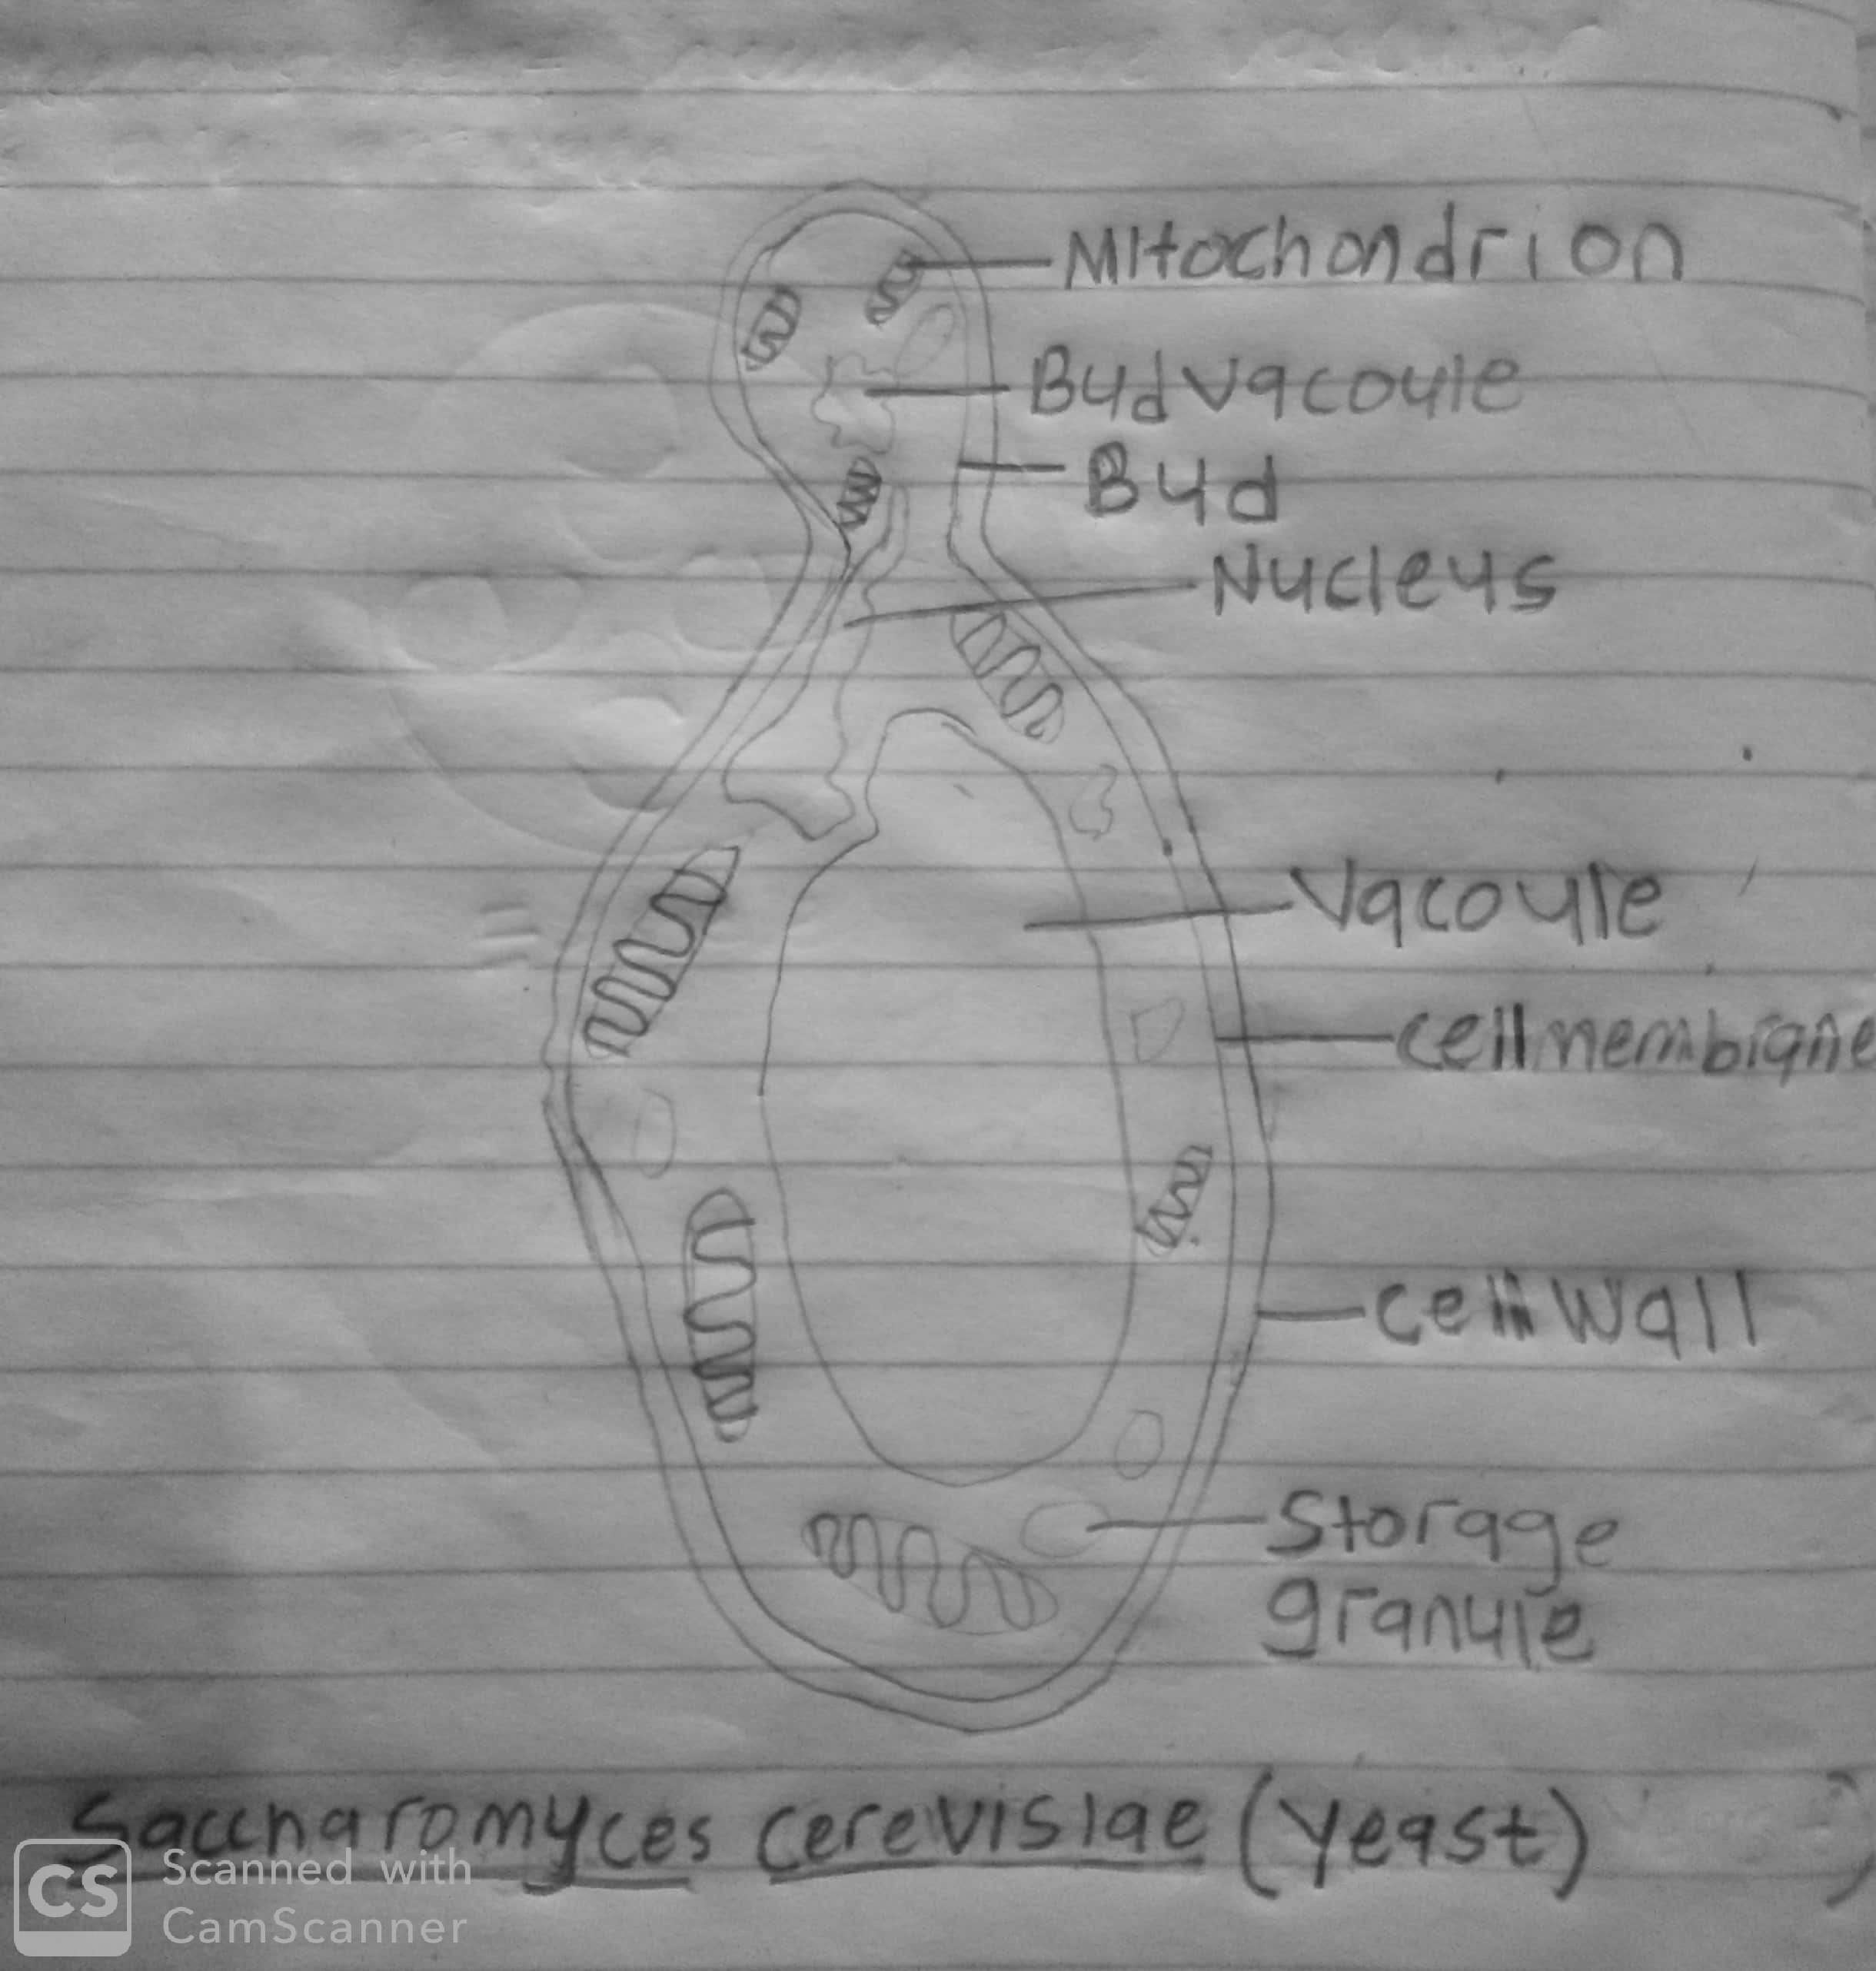 Mitochondrion
Bud vacoule
Bud
Nucleus
Vacoule
cell membrane
cell wall
Storage
granule
Saccharomyces cerevisiae (yeast)
CS Scanned with
CamScanner